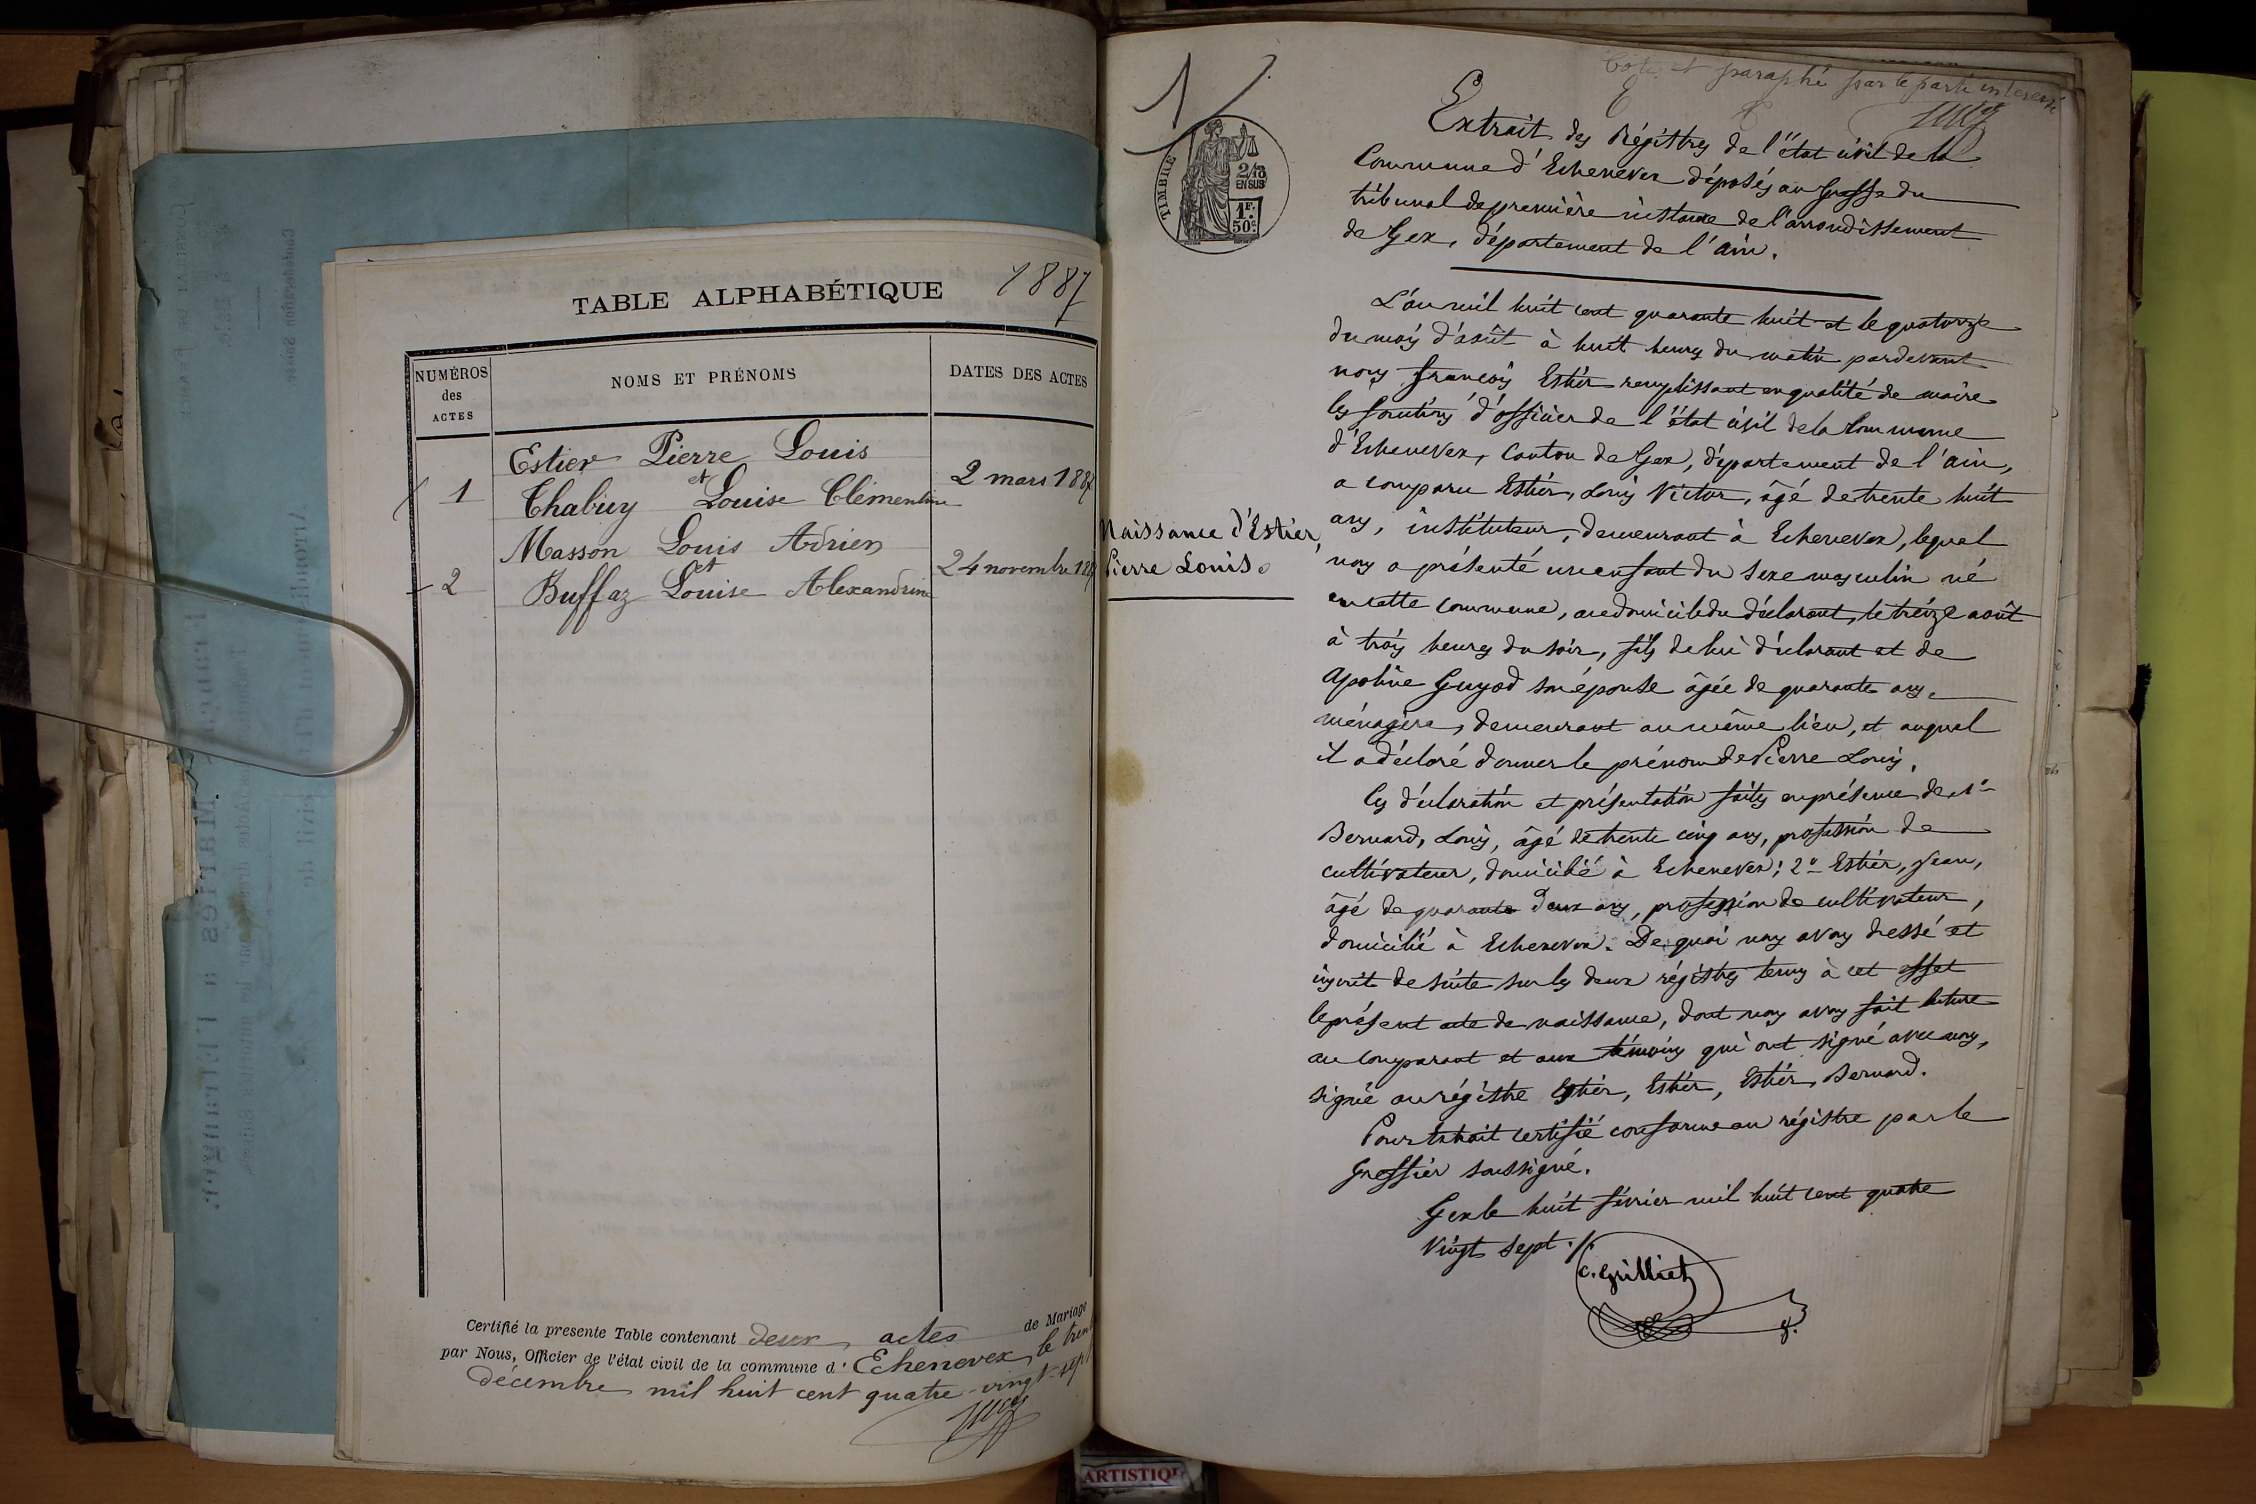 TABLE ALPHABÉTIQUE 1887
NUMÉROS
des
ACTES
NOMS ET PRÉNOMS
DATES DES ACTES
Estier Pierre Louis
1 et 2 mars 1887
Chabuy Louise Clémentine
Masson Louis Adrien
2 et 24 novembre 1887
Buffaz Louise Alexandrine
Certifié la presente Table contenant deux actes de Mariage
par Nous, Officier de l'état civil de la commune d' Echenevex, le trente
décembre mil huit cent quatre-vingt-sept
1
TIMBRE
2/10
EN SUS
1F.
50c
et paraphé par le parti intéressé
Extrait des Régistres de l'état civil de la
Commune d'Echenevex déposés au Greffe du
tribunal de première instance de l'arrondissement
de Gex, département de l'ain.
L'an mil huit cent quarante huit et le quatorze
du mois d'août à huit heures du matin pardevant
nous françois Estier remplissant en qualité de maire
les fonctions d'officier de l'état civil de la Commune
d'Echenevex, Canton de Gex, département de l'ain,
a comparu Estier, Louis Victor, âgé de trente huit
ans, instituteur, demeurant à Echenevex, lequel
nous a présenté un enfant du sexe masculin né
en cette commune, au domicile du déclarant, le treize août
à trois heures du soir, fils de lui déclarant et de
Apoline Guyod son épouse âgée de quarante ans.
ménagère, demeurant au même lieu, et auquel
il a déclaré donner le prénom de Pierre Louis.
Les déclaration et présentation faites en présence de 1°
Bernard, Louis, âgé de trente cinq ans, profession de
cultivateur, domicilié à Echenevex; 2° Estier, Jean,
âgé de quarante deux ans, profession de cultivateur,
domicilié à Echenevex. De quoi nous avons dressé et
inscrit de suite sur les deux régistres tenus à cet effet
le présent acte de naissance, dont nous avons fait lecture
au comparant et aux témoins qui ont signé avec nous,
signé au régistre Estier, Estier, Estier, Bernard.
Pour Extrait certifié conforme au régistre par le
Greffier soussigné.
Gex le huit février mil huit cent quatre
vingt sept ./.
C. Grilliet
Naissance d'Estier,
Pierre Louis.
ARTISTIQU